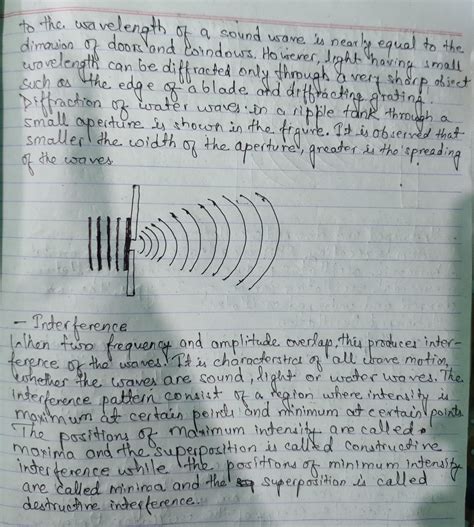 to the wavelength of a sound wave is nearly equal to the
dimension of doors and windows. However, light having small
wavelength can be diffracted only through a very sharp object
such as the edge of a blade and diffracting grating.
Diffraction of water waves in a ripple tank through a
small aperture is shown in the figure. It is observed that
smaller the width of the aperture, greater is the spreading
of the waves
- Interference
When two frequency and amplitude overlap, this produces inter-
ference of the waves. It is characteristics of all wave motion,
whether the waves are sound, light or water waves. The
interference pattern consist of a region where intensity is
maximum at certain points and minimum at certain points
The positions of maximum intensity are called
maxima and the superposition is called constructive
interference while the positions of minimum intensity
are called minima and the superposition is called
destructive interference.